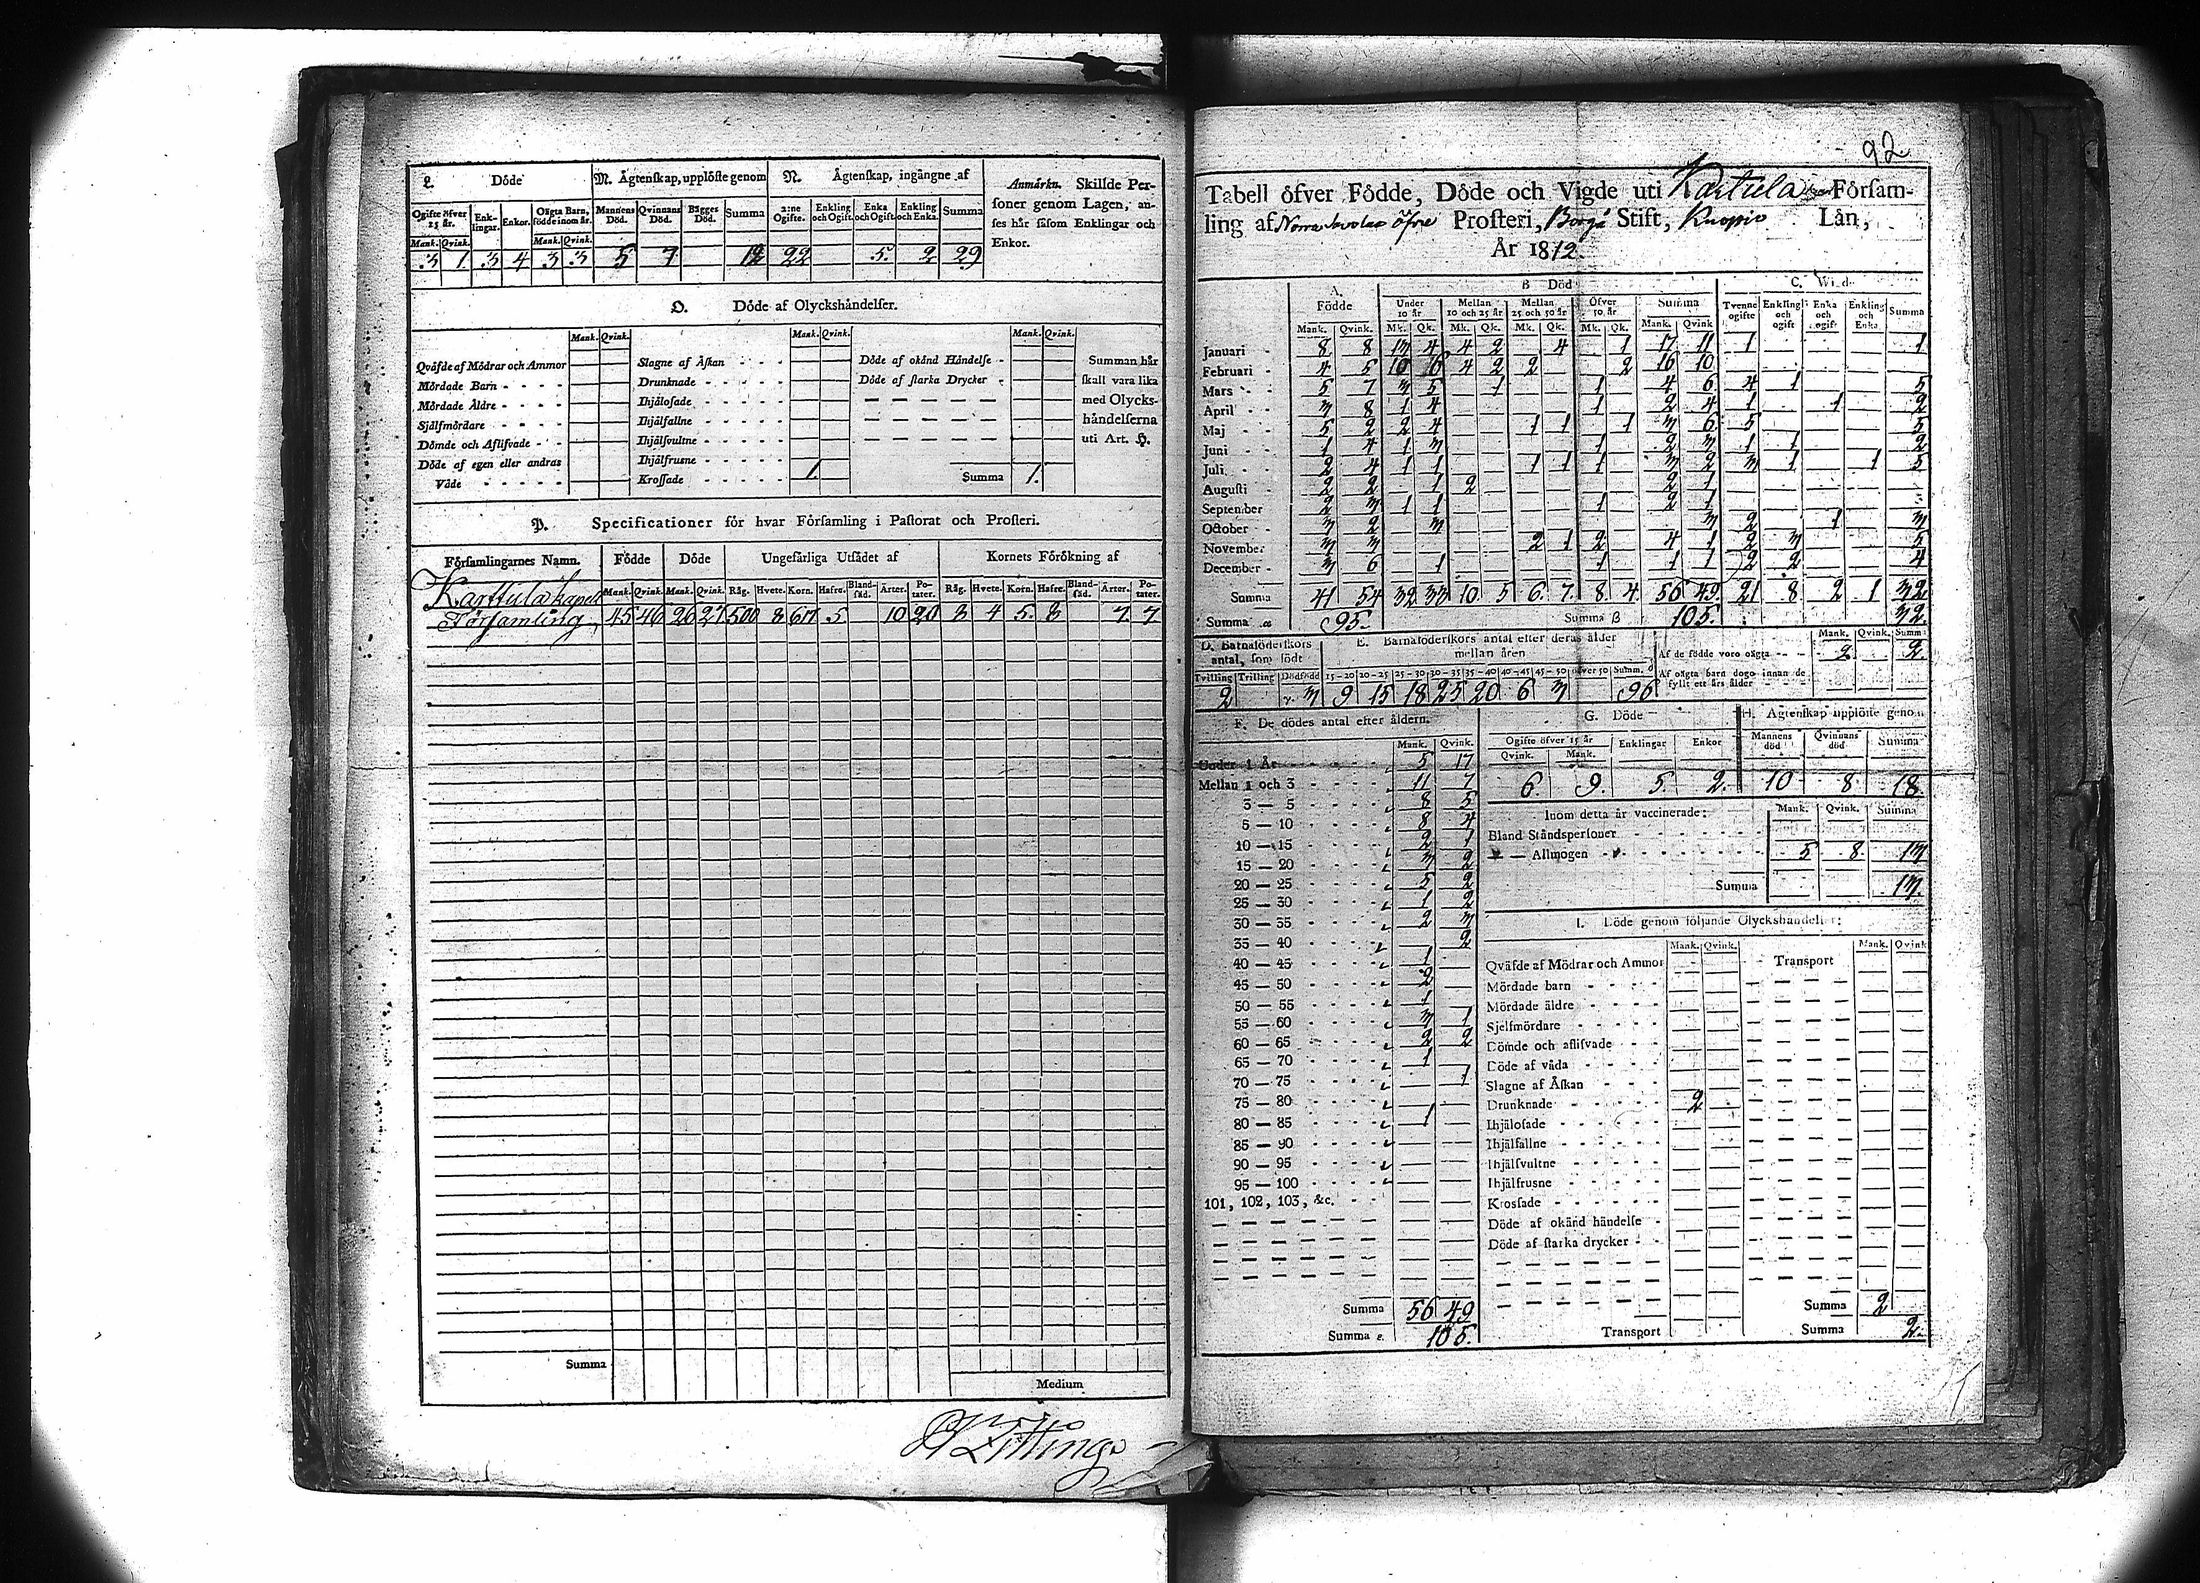 L. Döde
M. Ågtenskap, upplöste genom
N. Ågtenskap, ingångne af
Anmärkn. Skilsde Personer genom Lagen, anses hår såsom Enklingar och Enkor.
Ogifte öfver 25 år. Enklingar. Enkor. Oägta Barn, födde inom år. Mannens Död. Qvinnans Död. Bägges Död. Summa 2:ne Ogifte. Enkling och Ogift. Enka och Ogift. Enkling och Enka. Summa
Mank. Qvink. Mank. Qvink.
3 1. 3 4 3 3 5 7 12 22 5. 2 29
O. Döde af Olyckshåndelser.
Mank. Qvink. Mank. Qvink. Mank. Qvink.
Qväfde af Mödrar och Ammor
Mördade Barn
Mördade Äldre
Själfmördare
Dömde och Aflifvade
Döde af egen eller andras Våde
Slagne af Åskan
Drunknade
Ihjälosade
Ihjälfallne
Ihjälsvultne
Ihjälfrusne
Krossade 1.
Döde af okånd Håndelse
Döde af starka Drycker
Summa 1.
Summan hår skall vara lika med Olyckshåndelserna uti Art. H.
P. Specificationer för hvar Församling i Pastorat och Prosteri.
Församlingarnes Namn. Födde Döde Ungefärliga Utsådet af Kornets Förökning af
Mank. Qvink. Mank. Qvink. Råg. Hvete. Korn. Hafre. Blandsäd. Ärter. Potater. Råg. Hvete. Korn. Hafre. Blandsäd. Ärter. Potater.
Karttula kapell
Församling 45 46 26 27 500 8 617 5 10 20 8 4 5. 8 7. 7
Summa
Medium
92
Tabell öfver Födde, Döde och Vigde uti Karttula Försam-
ling af Norra Savolax öfre Prosteri, Borgå Stift, Kuopio Län,
År 1812.
A. Födde B Död C. Wigde
Under 10 år Mellan 10 och 25 år Mellan 25 och 50 år Öfver 50 år Summa Tvenne ogifte Enkling och ogift Enka och ogift Enkling och Enka Summa
Mank. Qvink. Mk. Qk. Mk. Qk. Mk. Qk. Mk. Qk. Mank. Qvink
Januari 8 8 13 4 4 2 4 1 17 11 1 1
Februari 4 5 10 6 4 2 2 2 16 10
Mars 5 7 3 5 1 1 4 6 4 1 5
April 3 8 1 4 1 2 4 1 1 2
Maj 5 2 2 4 1 1 1 3 6 5 5
Juni 1 4 1 3 1 2 3 1 1 2
Juli 2 4 1 1 1 1 1 3 2 3 1 1 5
Augusti 2 2 1 2 2 1
September 2 3 1 1 1 2 1
October 3 2 3 3 2 1 3
November 3 3 2 1 2 4 1 2 3 5
December 3 6 1 1 1 1 2 2 4
Summa 41 54 32 33 10 5 6. 7. 8 4 56 49. 21 8 2 1 32
Summa a 95. Summa B 105. 32.
D. Barnaföderskors antal, som födt
E. Barnaföderskors antal efter deras ålder mellan åren
Tvilling Trilling Dödfödd 15-20 20-25 25-30 30-35 35-40 40-45 45-50 öfver 50 Summ.
2 3 9 15 18 25 20 6 3 96
Mank. Qvink. Summ:
Af de födde voro oägta 2. 2.
Af oägta barn dogo innan de fyllt ett års ålder
F. De dödes antal efter åldern.
Mank. Qvink.
Under 1 År 5 17
Mellan 1 och 3 11 7
3 — 5 8 5
5 — 10 8 4
10 — 15 2 1
15 — 20 3 2
20 — 25 5 2
25 — 30 1 2
30 — 35 2 3
35 — 40 2
40 — 45 1
45 — 50 2
50 — 55 1
55 — 60 3 1
60 — 65 2 2
65 — 70 1
70 — 75 1
75 — 80
80 — 85 1
85 — 90
90 — 95
95 — 100
101, 102, 103, &c.
Summa 56 49
Summa e. 105.
G. Döde
Ogifte öfver 15 år Enklingar Enkor
Qvink. Mank.
6. 9. 5. 2.
H. Ägtenskap upplöste genom
Mannens död Qvinnans död Summa
10 8 18
Inom detta år vaccinerade: Mank. Qvink. Summa
Bland Ståndspersoner
— Allmogen 5 8 13
Summa 13.
I. Döde genom följande Olyckshändelser:
Mank. Qvink. Mank. Qvink
Qväfde af Mödrar och Ammor Transport
Mördade barn
Mördade äldre
Sjelfmördare
Dömde och aflifvade
Döde af våda
Slagne af Åskan
Drunknade 2
Ihjälosade
Ihjälfallne
Ihjälsvultne
Ihjälfrusne
Krossade
Döde af okänd händelse
Döde af starka drycker
Summa 2
Transport Summa 2.